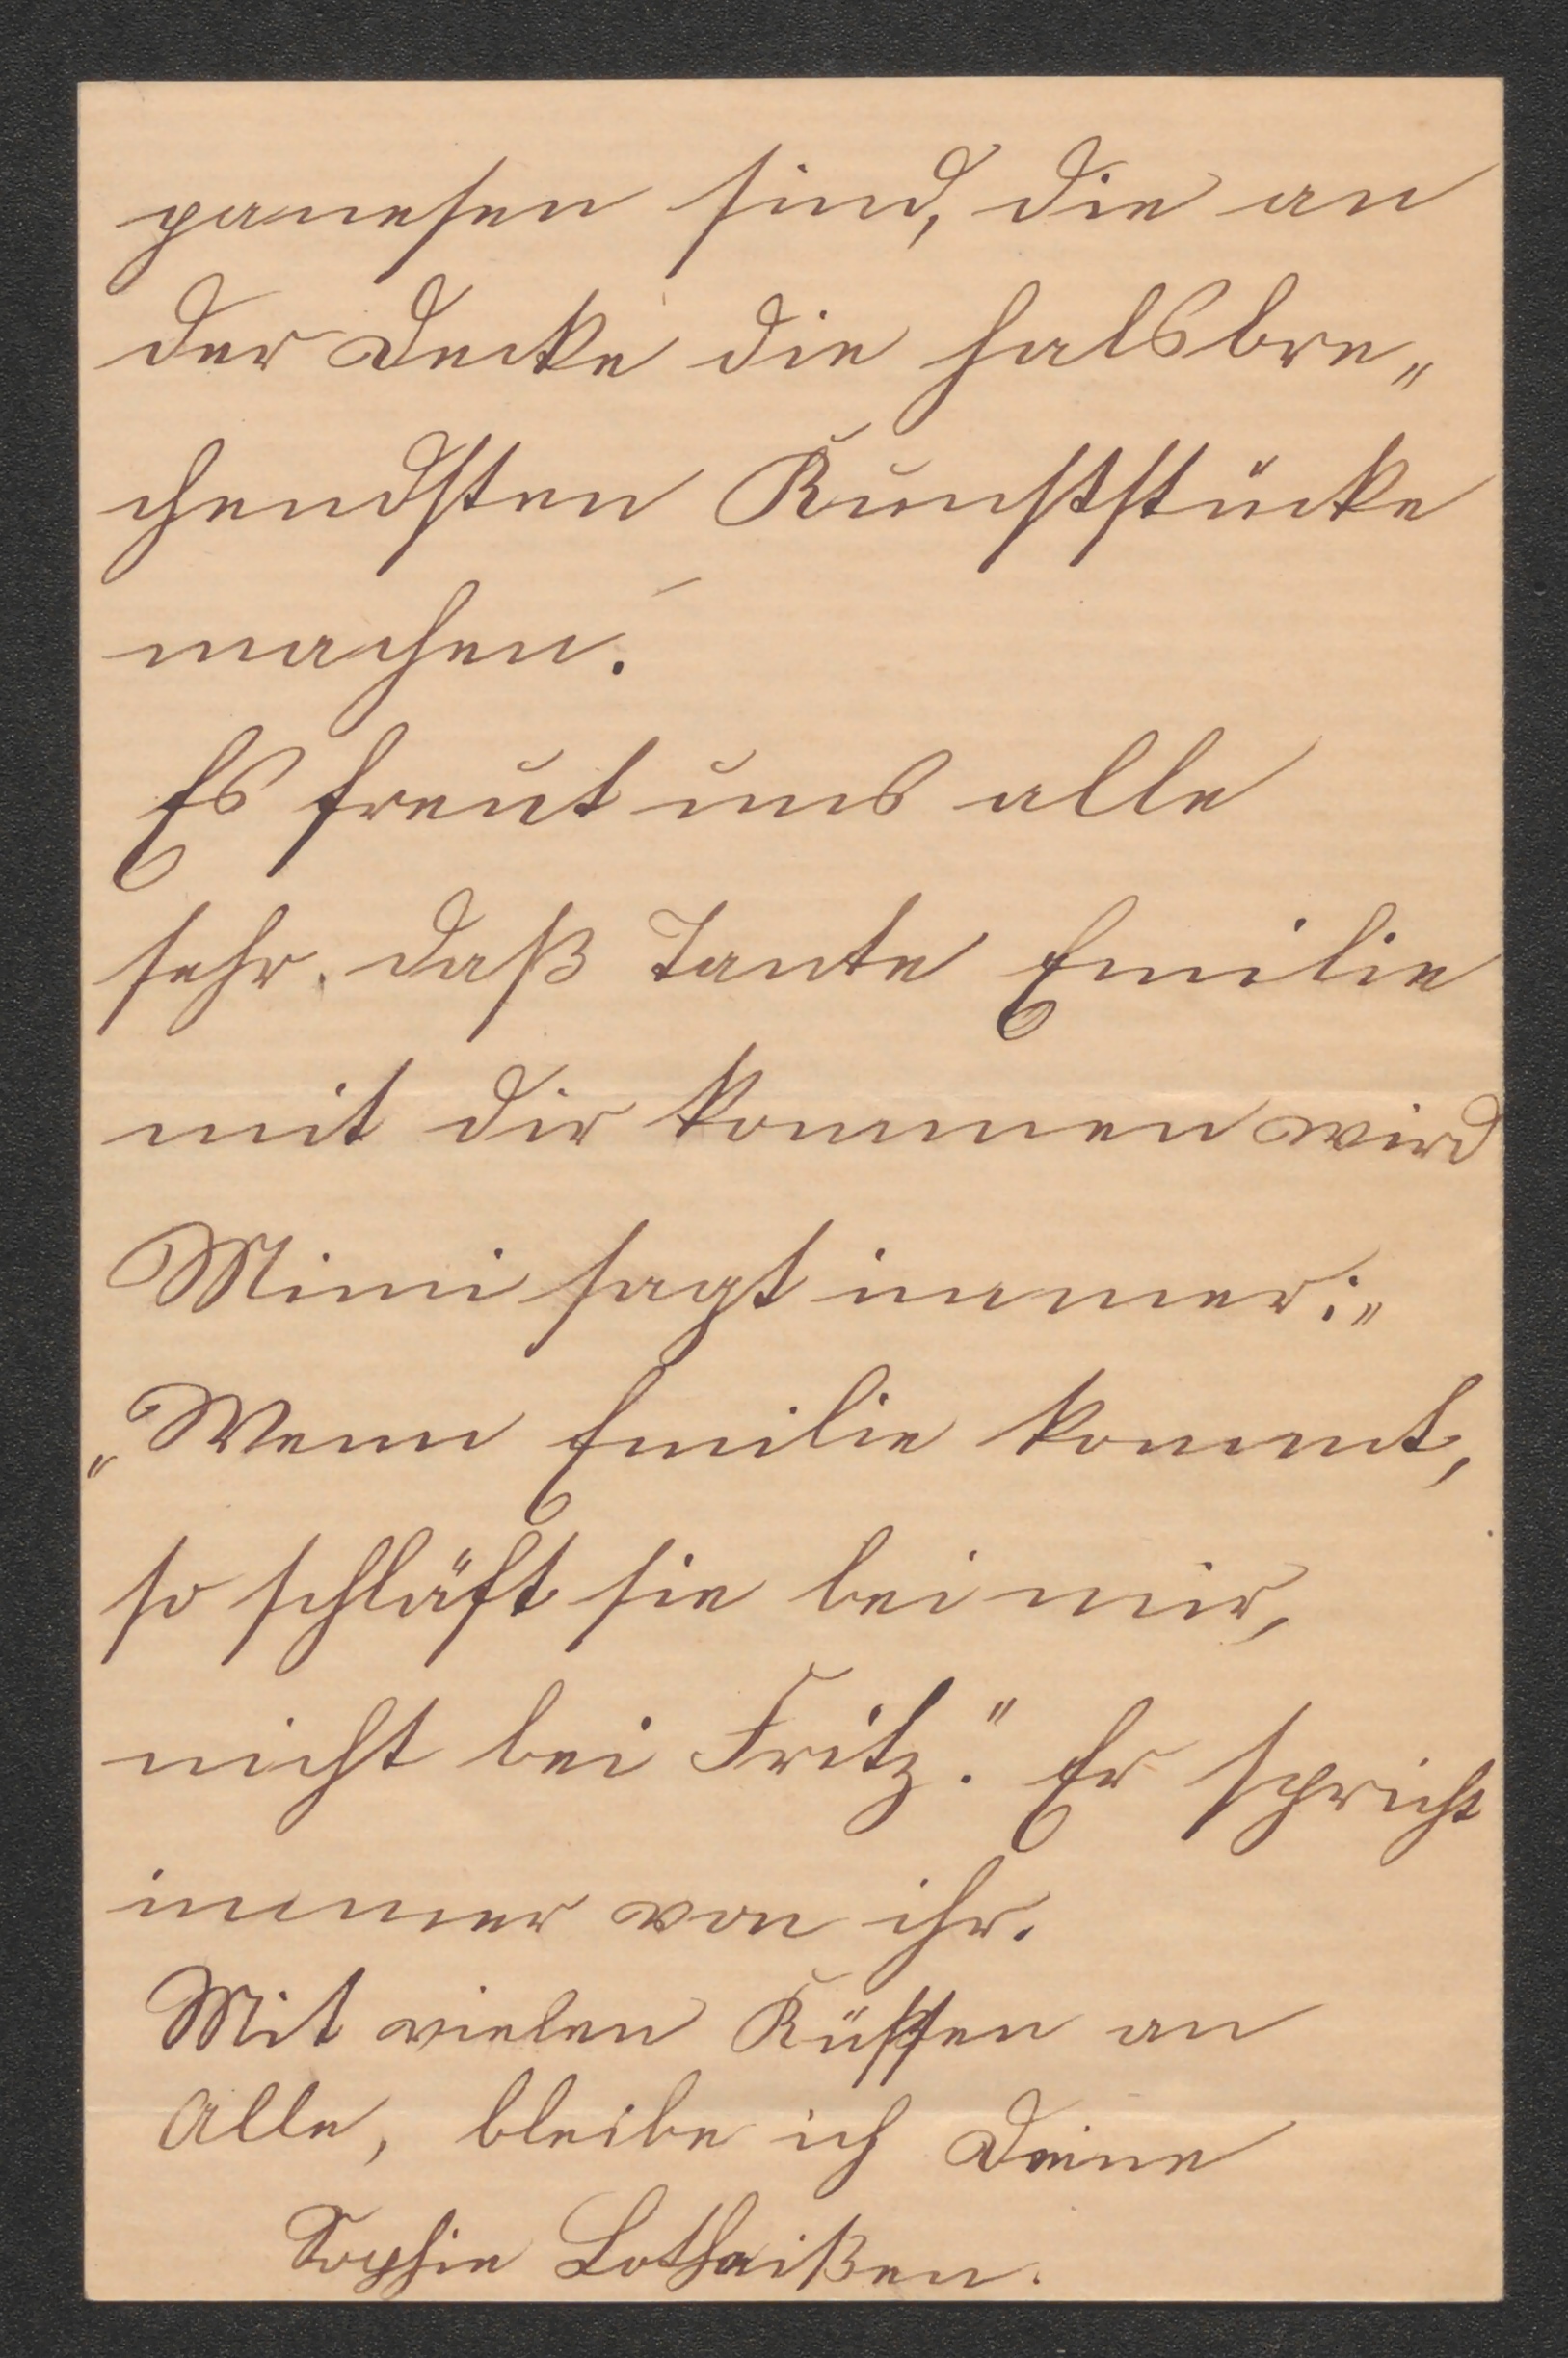 panesen sind, die an
der Decke die halsbre„
chendsten Kunststücke
machen.
Es freut uns alle
sehr. daß Tante Emilie
mit dir kommen wird
Mimi sagt immer:„
„Wenn Emilie kommt,
so schläft sie bei mir,
nicht bei Fritz." Er spricht
immer von ihr.
Mit vielen Küssen an
Alle, bleibe ich Deine
Sophie Lotheißen.